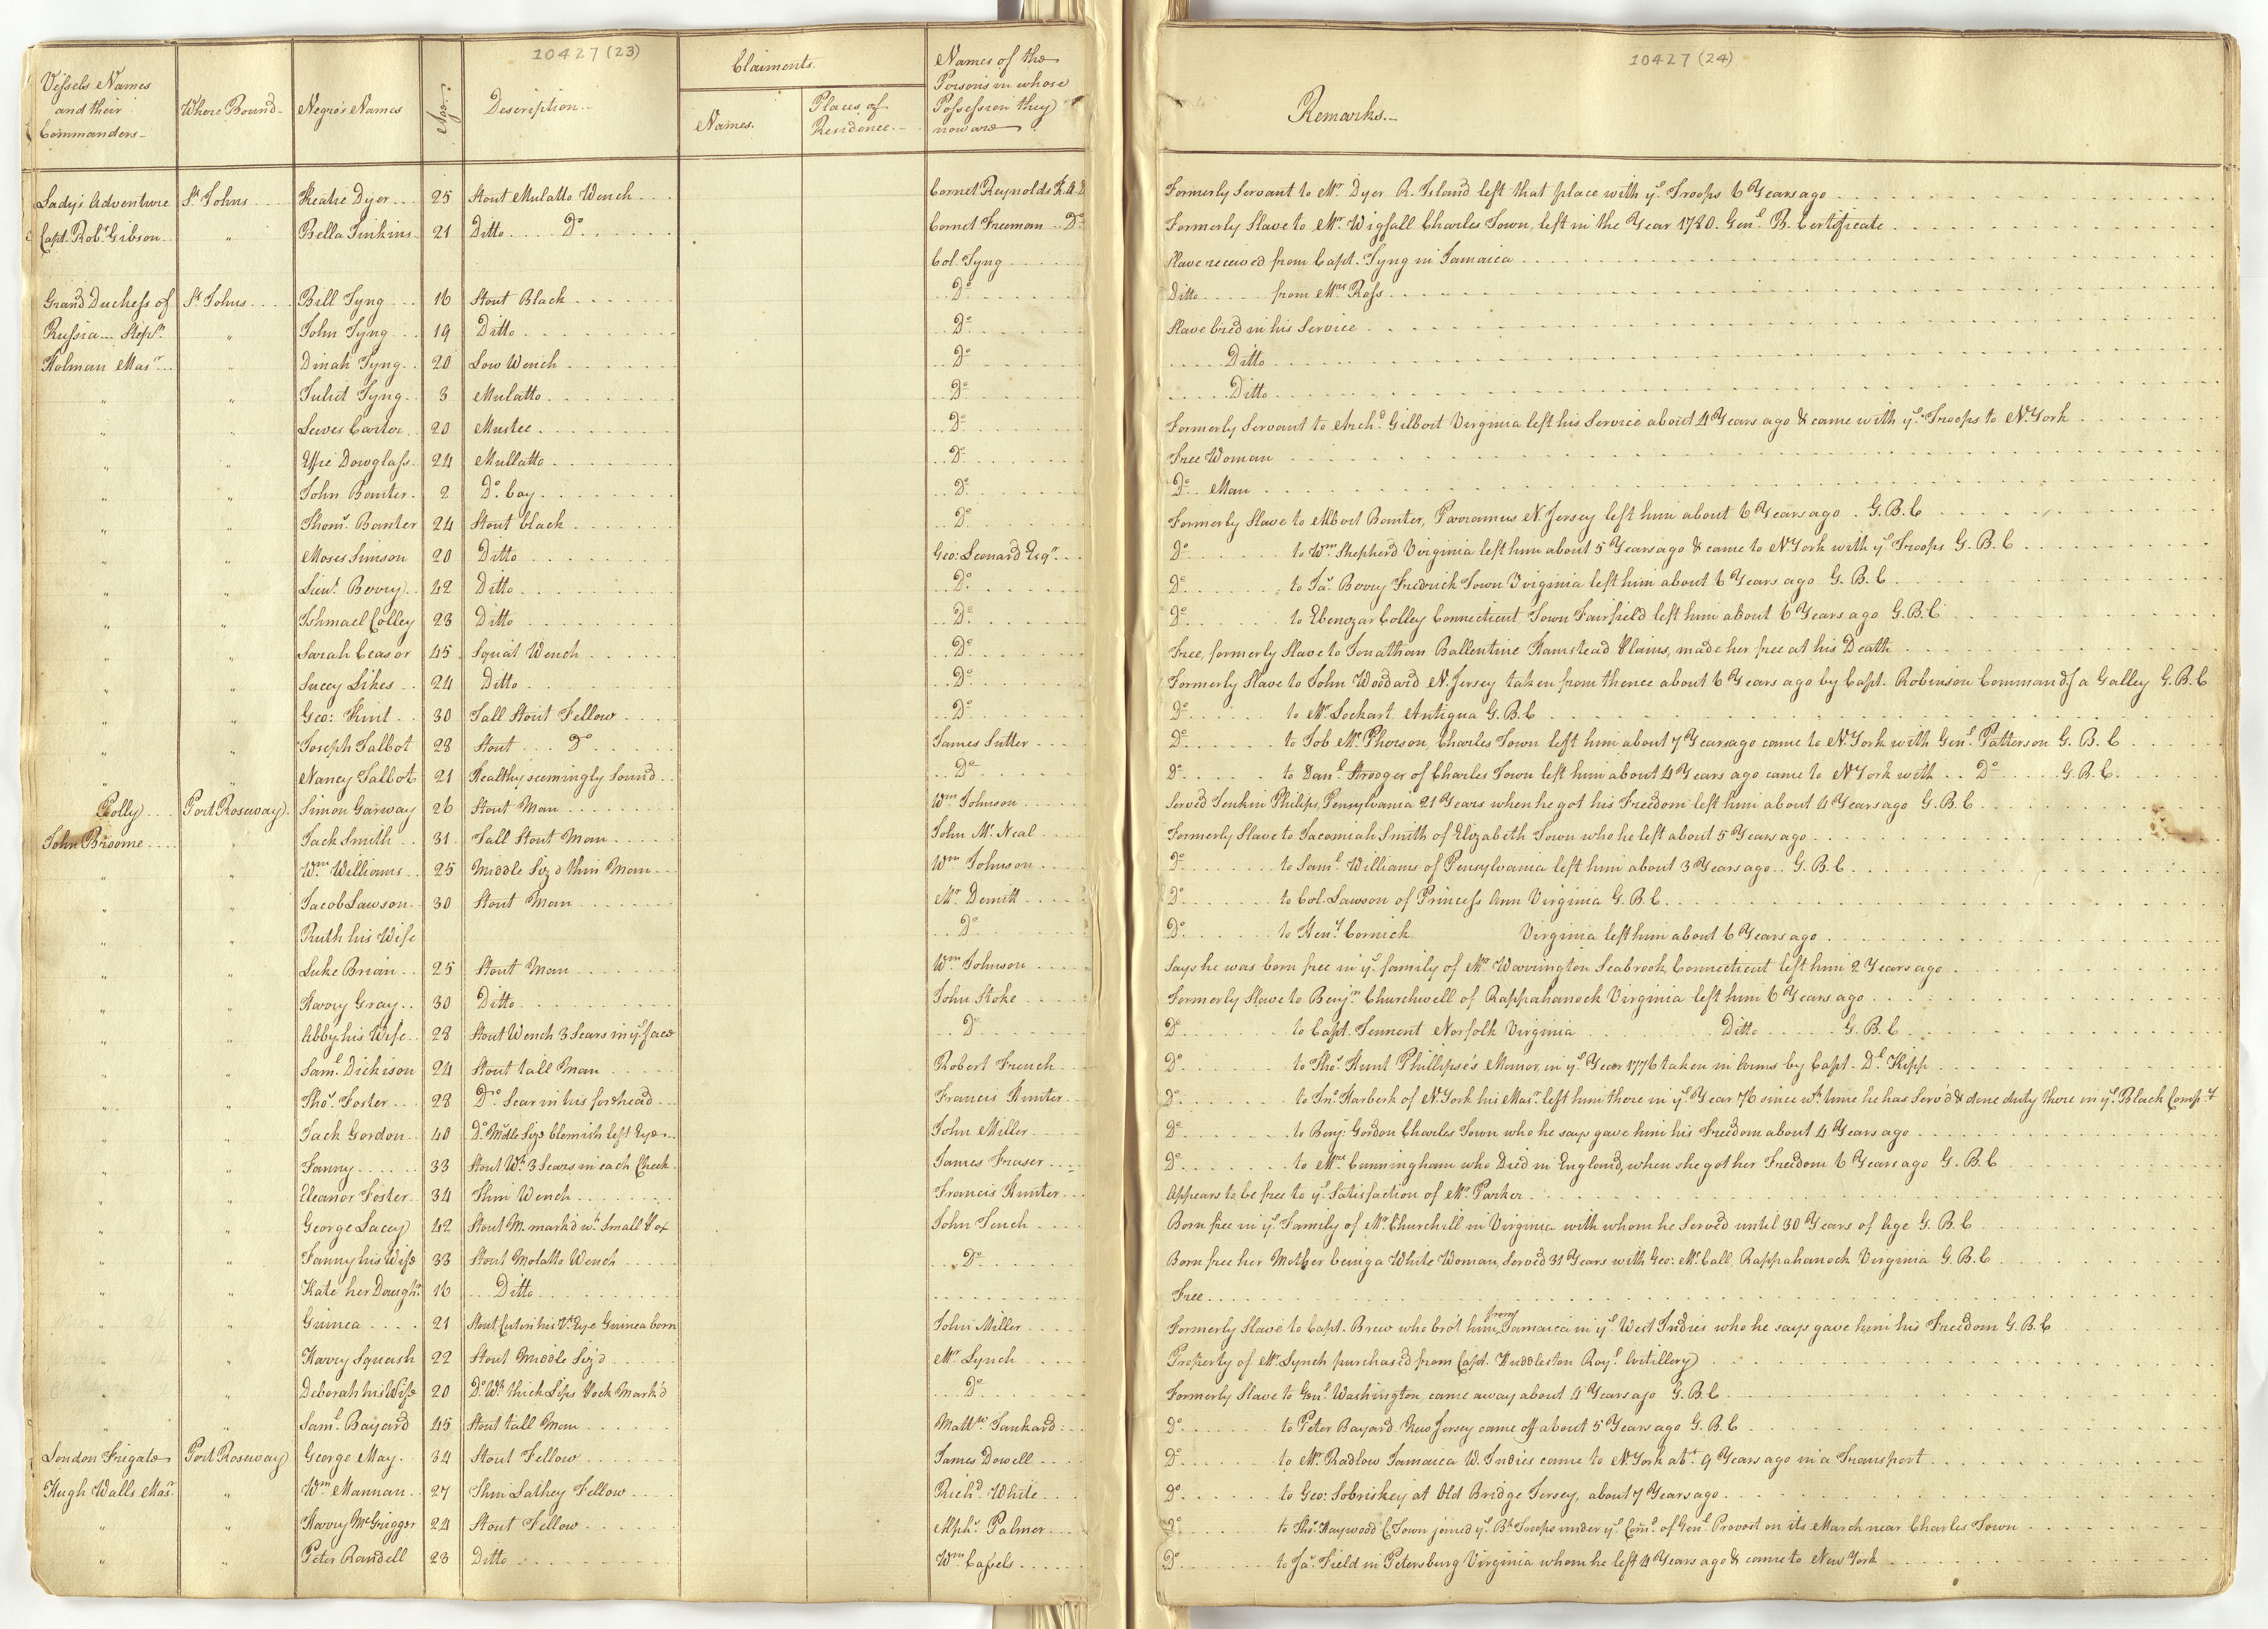 10427 (23)
Vessels Names and their Commanders
Where Bound
Negroes Names
Age
Description
Claiments
Names.
Places of Residence
Names of the Persons in whose Possession they now are
10427 (24)
Remarks
Ladys Adventure St Johns Dyer 25 Stout Mulatto Wench Cornet Reynolds Formerly Servant to Mr Dyer R. Island left that place with ye Troops 6 Years ago
Capt. Robt Gibson " Bella Jinkins 21 Ditto Do Cornet Freeman Do Formerly Slave to Mr Wigfall Charles Town, left in the Year 1780. Genl B. Certificate
Col. Tyng Slave received from Capt. Tyng in Jamaica
Grand Duchess of St Johns Bill Tyng 16 Stout Black Do Ditto from Mrs Ross
Russia Stepn " John Tyng 19 Ditto Do Slave bred in his Service
Holman Masr " Dinah Tyng 20 Low Wench Do Ditto
" " Juliet Tyng 3 Mulatto Do Ditto
" " Lewes Carter 20 Mustee Do Formerly Servant to Archd Gilbert Virginia left his Service about 4 Years ago & came with ye Troops to N. York
" " Effie Dowglass 24 Mullatto Do Free Woman
" " John Banter 2 Do boy Do Do Man
" " Thoms Banter 24 Stout black Do Formerly Slave to Albert Banter, Parramus N. Jersey left him about 6 Years ago G.B.C
" " Moses Simson 20 Ditto Geo: Leonard Esqr Do to Wm Shepherd Virginia left him about 5 Years ago & came to N York with ye Troops G.B.C
" " Lieut Berry 42 Ditto Do Do to Jas Berry Fredrick Town Virginia left him about 6 Years ago G.B.C
" " Ishmael Colley 23 Ditto Do Do to Ebenezar Colley Connecticut Town Fairfield left him about 6 Years ago G.B.C
" " Sarah Ceasor 45 Squat Wench Do Free, formerly Slave to Jonathan Ballentine Hamstead Plains, made her free at his Death
" " Succy Sikes 24 Ditto Do Formerly Slave to John Woodard N. Jersey taken from thence about 6 Years ago by Capt. Robinson Commandg a Galley G.B.C
" " Geo: Hint 30 Tall Stout Fellow Do Do to Mr Lockart Antigua G.B.C
" " Joseph Talbot 28 Stout Do James Sutter Do to Job McPherson, Charles Town left him about 7 Years ago came to N York with Genl Patterson G.B.C
" " Nancy Talbot 21 Healthy seemingly sound Do Do to Danl Strodger of Charles Town left him about 4 Years ago came to N York with Do G.B.C.
Polly Port Roseway Simon Garway 26 Stout Man Wm Johnson Served Jenkin Philips, Pensylvania 21 Years when he got his Freedom left him about 4 Years ago G.B.C
John Broome " Jack Smith 31 Tall Stout Man John McNeal Formerly Slave to Jacomiah Smith of Elizabeth Town who he left about 5 Years ago
" " Wm Williams 25 Middle Siz'd thin Man Wm Johnson Do to Saml Williams of Pensylvania left him about 3 Years ago G.B.C
" " Jacob Lawson 30 Stout Man Mr Demill Do to Col. Lawson of Princess Ann Virginia G.B.C.
" " Ruth his Wife Do Do to Heny Cornick Virginia left him about 6 Years ago
" " Luke Brian 25 Stout Man Wm Johnson Says he was born free in ye family of Mr Warrington Seabrook, Connecticut left him 2 Years ago
" " Harry Gray 30 Ditto John Stoke Formerly Slave to Benjn Churchwell of Rappahanock Virginia left him 6 Years ago
" " Abby his Wife 28 Stout Wench 3 Scars in ye face Do Do to Capt. Tennent Norfolk Virginia Ditto G.B.C
" " Saml Dickison 24 Stout tall Man Robert French Do to Thos Hunt Phillipse's Manor, in ye Year 1776 taken in Arms by Capt. Dl Kipp
" " Thos Foster 28 Do Scar in his forehead Francis Hunter Do to Jno Harberk of N. York his Masr left him there in ye Year 76 since wh time he has Serv'd & done duty there in ye Black Compy
" " Jack Gordon 40 Do Midle Siz'd blemish left Eye John Miller Do to Benj: Gordon Charles Town who he says gave him his Freedom about 4 Years ago
" " Fanny 33 Stout Wh 3 Scars in each Cheek James Fraser Do to Mrs Cunningham who Died in England, when she got her Freedom 6 Years ago G.B.C
" " Eleanor Foster 34 Thin Wench Francis Hunter Appears to be free to ye Satisfaction of Mr Parker
" " George Lacey 42 Stout M. mark'd wh Small Pox John Tench Born free in ye Family of Mr Churchill in Virginia with whom he Served until 30 Years of Age G.B.C
" " Fanny his Wife 33 Stout Molatto Wench Do Born free her Mother being a White Woman, Served 31 Years with Geo: McCall, Rappahanock Virginia G.B.C
" " Kate her Daughr 16 Ditto Free
" " Guinea 21 Stout Cut in his Rt Eye Guinea born John Miller Formerly Slave to Capt. Brew who bro't him from Jamaica in ye West Indies who he says gave him his Freedom G.B.C
" " Harry Squash 22 Stout Middle Siz'd Mr Lynch Property of Mr Lynch purchased from Capt. Huddleston Royl Artillery
" " Deborah his Wife 20 Do Wh thick Lips Pock Mark'd Do Formerly Slave to Genl Washington, came away about 4 Years ago G.B.C
" " Saml Bayard 45 Stout tall Man Mattw Tankard Do to Peter Bayard New Jersey came off about 5 Years ago G.B.C
London Frigate Port Roseway George May 34 Stout Fellow James Dowell Do to Mr Radlow Jamaica W. Indies came to N. York abt 9 Years ago in a Transport
Hugh Walls Masr " Wm Mannan 27 Thin Lathey Fellow Richd White Do to Geo: Sobriskey at Old Bridge Jersey, about 7 Years ago
" " Harry McGrigger 24 Stout Fellow Alphs Palmer Do to Thos Haywood C. Town joined ye Bh Troops under ye Comd of Genl Provost on its March near Charles Town
" " Peter Randell 23 Ditto Wm Cassels Do to Jas Field in Petersburg Virginia whom he left 4 Years ago & came to New York